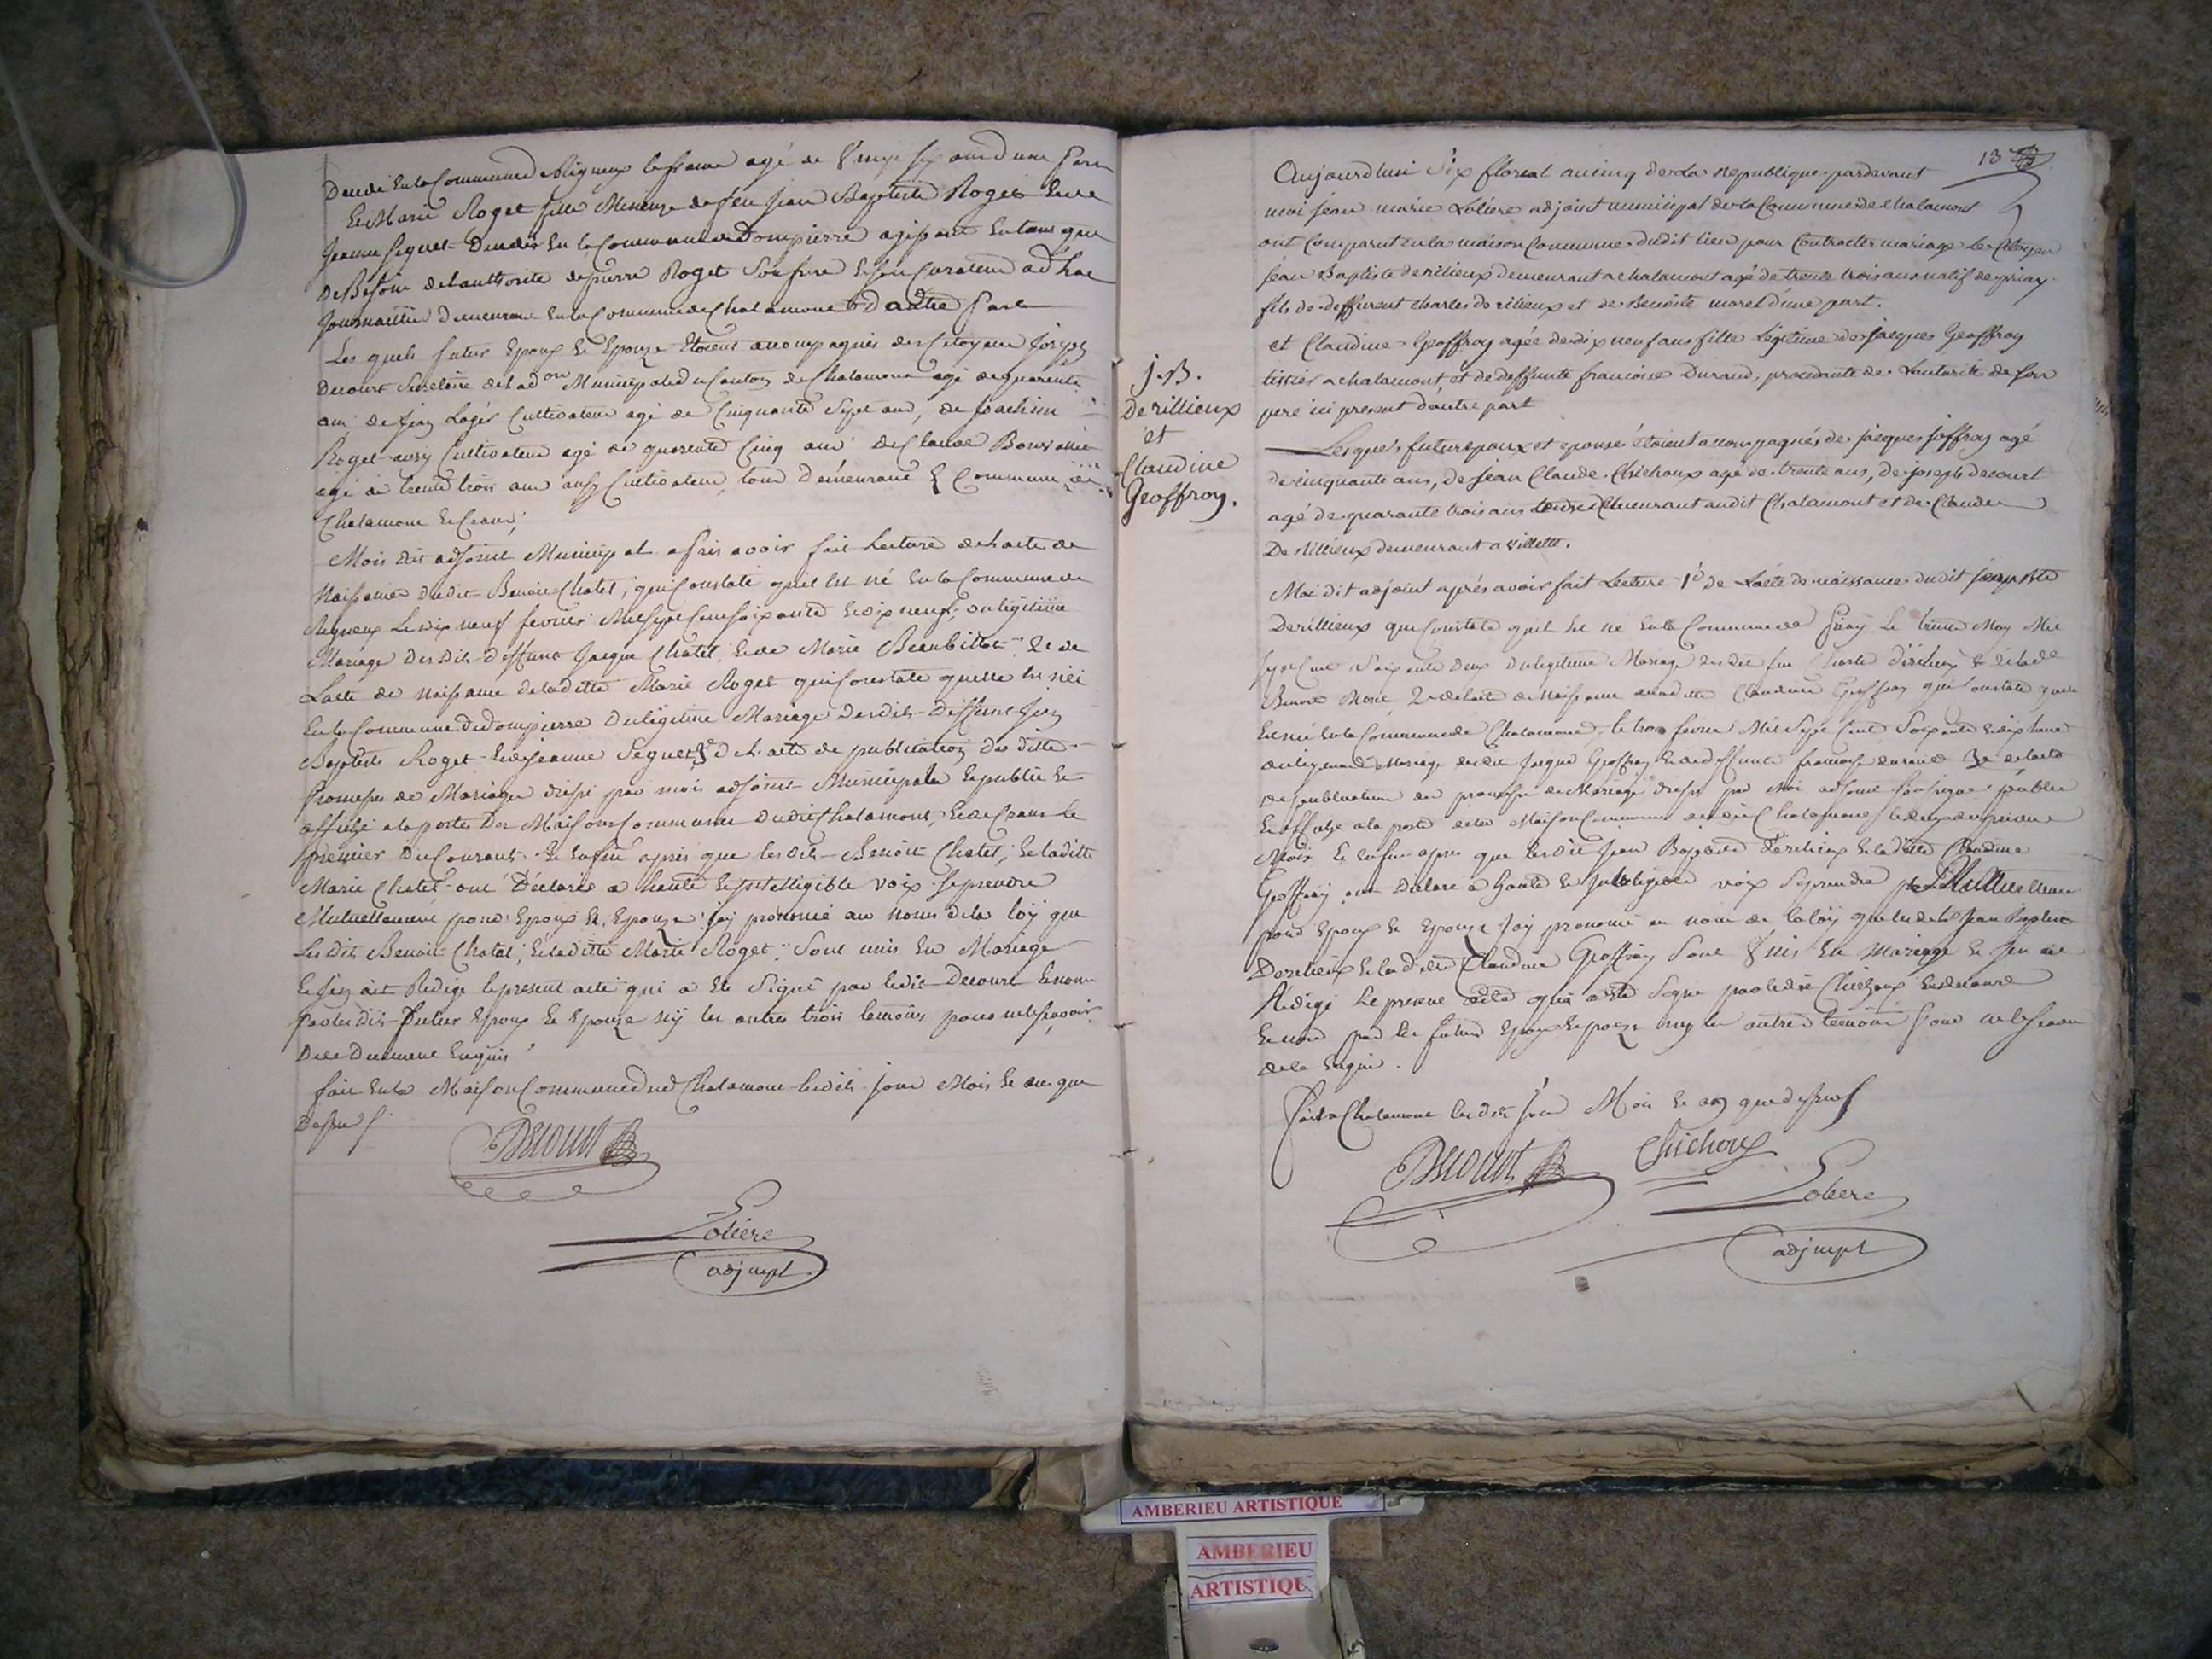 Demdt en la Commune de Rigneux le franc agé de Vingt six ans d'une part
Et Marie Roget fille Mineure de feu Jean Baptiste Roget et de
Jeanne Seguet Demdt en la Commune de Dompierre agissant en tant que
De Besoin de l'authorité de pierre Roget son frere et son Curateur ad hoc
Journaillier demeurant en la Commune de Chalamont d'autre part
Les quels futur Epoux et Epouze étoient accompagnés des Citoyens Joseph
Decourt Secretaire de L'adon Municipale du Canton de Chalamont agé de quarente
ans, de Jean Lager Cultivateur agé de Cinquante Sept ans, de Joachim
Roget aussy Cultivateur agé de quarente Cinq ans de Claude
agé de trente trois ans aussy Cultivateur, tous demeurant Commune de
Chalamont et Crans;
Mois dit adjoint Municipal apres avoir fait Lecture de L'acte de
Naissance dudit Benoit Chatel, qui Constate qu'il est né en la Commune de
Rigneux Le dix neuf fevrier Mil sept cent soixante et dix neuf, du légitime
Mariage desdits deffunt Jacque Chatel et de Marie 2e de
L'acte de Naissance de laditte Marie Roget qui Constate quelle est née
En la Commune de Dompierre du légitime Mariage desdits deffunt Jean
Baptiste Roget et de Jeanne Seguet 3e de L'acte de publication des dittes
promesses de Mariage dressé par mois adjoint Municipal et publié et
affiché a la porte des Maisons Communes dudit Chalamont, et de Crans le
premier du Courant et enfin après que lesdits Benoit Chatel, et laditte
Marie Chatel ont Déclaré a haute et Intelligible voix se prendre
Mutuellement pour Epoux et Epouze j'ay prononcé au nom de la loÿ que
Lesdits Benoit Chatel, et laditte Marie Roget, sont unis en Mariage
Et j'en ait Rédigé le present acte qui a été Signé par ledit Decourt et non
par lesdits futur Epoux et Epouze nÿ les autres trois témoins pour ne le sçavoir
De ce Duement Enquis
fait en la Maison Commune de Chalamont lesdits jour Mois et an que
Dessus
Decourt
Lolière
adj mpl
13
Aujourdhui Six floreal an cinq de La republique pardevant
moi jean marie Loliere adjoint municipal de la Commune de chalamont
ont Comparut en la maison Commune dudit lieu pour Contracter mariage Le Citoyen
jean Baptiste derilieux demeurant a chalamont agé de trente trois ans natif de priay
fils de deffunt charles de rilieux et de Benoite morel d'une part.
et Claudine Geoffroy agée de dix neuf ans fille Légitime de jacques Geoffroy
tissier a chalamont, et de deffunte francoise Durand, procedante de Lautorité de son
pere ici present d'autre part
Lesquels futur epoux et epouse étoient accompagnés de jacques joffroy agé
de cinquante ans, de jean Claude Chichoux agé de trente ans, de joseph decourt
agé de quarante trois ans tous demeurant audit Chalamont et de Claude
De rillieux demeurant a villette.
j.B.
De rillieux
et
Claudine
Geoffroy.
Moi dit adjoint après avoir fait Lecture 1° de Lacte de naissance dudit jean Bte
Derillieux qui Constate qu'il est né en la Commune de Priay Le trente May Mil
Sept Cent Soixante deux du légitime Mariage dudit feu Charle Derilieux & de lade
Benoite Morel, 2e de L'acte de Naissance de laditte Claudine Geoffroy qui Constate quelle
Est née en la Commune de Chalamont, le trois fevrier Mil Sept Cent Soixante et dix huit
du légitime Mariage dudit Jacque Geoffroy et de deffunte francoise durand 3e de L'acte
de publication des promesses de Mariage dressé par Moi adjoint Soussigné publié
Et affiché a la porte de la Maison Commune dudit Chalamont le deux du présent
Mois et enfin apres que lesdit Jean Baptiste Derilieux et laditte Claudine
Geoffroy ont Declaré a haute et Intelligible voix se prendre Mutuellement
pour Epoux et Epouze j'ay prononcé au nom de la loÿ que lesdits Jean Baptiste
Derilieux et laditte Claudine Geoffroy sont Unis en mariage et j'en ait
Rédigé le present acte qui a été Signé par ledit Chichoux et decourt
Et non par les futurs Epoux Epouze ny les autres témoins pour ne le savoir
de ce Enquis.
fait a Chalamont lesdits jour Mois et an que dessus
Decourt
Chichoux
Loliere
adj mpl
AMBERIEU ARTISTIQUE
AMBERIEU
ARTISTIQU